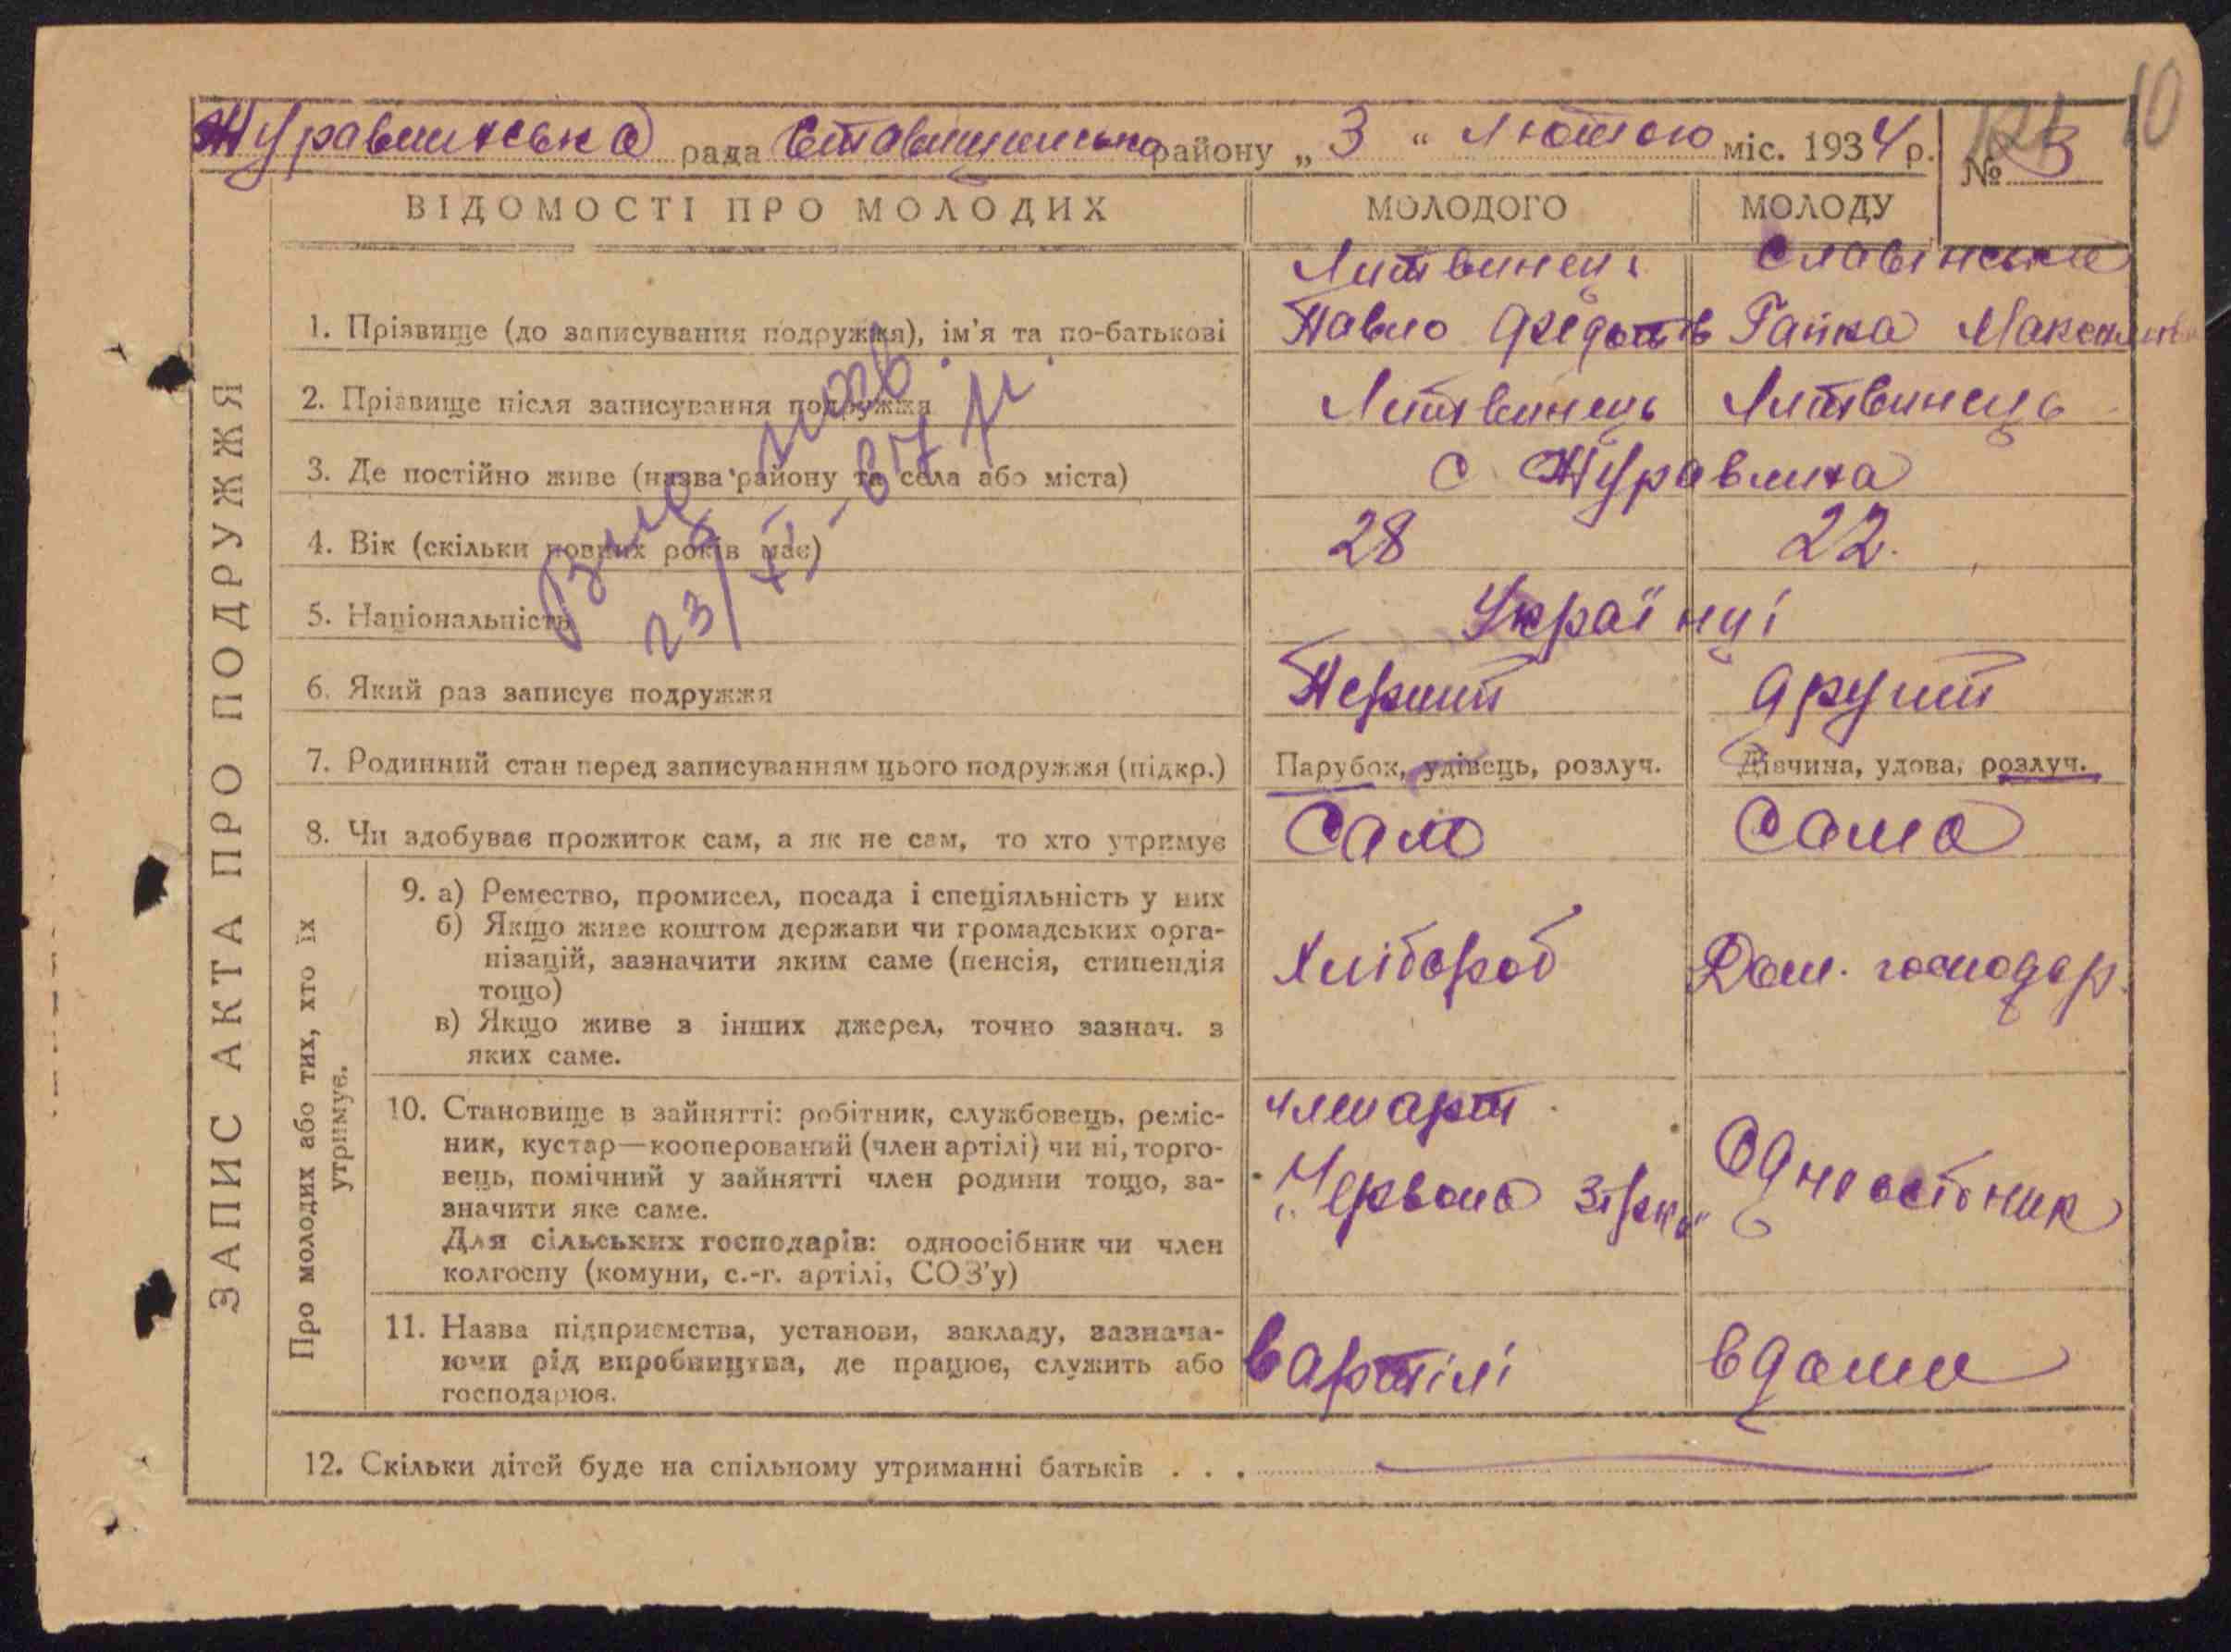 Журавлиська рада Ставищинська району „ 3 “ Лютого міс. 1934 р. № 3
10
ВІДОМОСТІ ПРО МОЛОДИХ МОЛОДОГО МОЛОДУ
ЗАПИС АКТА ПРО ПОДРУЖЖЯ
Литвинець Славінська
1. Прізвище (до записування подружжя), ім’я та по-батькові Павло Федотів Ганка
2. Прізвище після записування подружжя Литвинець Литвинець
3. Де постійно живе (назва району та села або міста) с Журавлиха
4. Вік (скільки повних років має) 28 22.
5. Національність Українці
6. Який раз записує подружжя Перший другий
7. Родинний стан перед записуванням цього подружжя (підкр.) Парубок, удівець, розлуч. Дівчина, удова, розлуч.
8. Чи здобуває прожиток сам, а як не сам, то хто утримує Сам Сама
Про молодих або тих, хто їх
утримує.
9. а) Ремество, промисел, посада і спеціяльність у них
б) Якщо живе коштом держави чи громадських орга-
нізацій, зазначити яким саме (пенсія, стипендія
тощо)
в) Якщо живе з інших джерел, точно зазнач. з
яких саме.
Хлібороб Дом. господар.
10. Становище в зайнятті: робітник, службовець, реміс-
ник, кустар—кооперований (член артілі) чи ні, торго-
вець, помічний у зайнятті член родини тощо, за-
значити яке саме.
Для сільських господарів: одноосібник чи член
колгоспу (комуни, с.-г. артілі, СОЗ’у)
член арт.
„Червона зірка“ Одноосібник
11. Назва підприємства, установи, закладу, зазнача-
ючи рід виробництва, де працює, служить або
господарює.
в артілі вдома
12. Скільки дітей буде на спільному утриманні батьків . . .
23/XI-37 р.